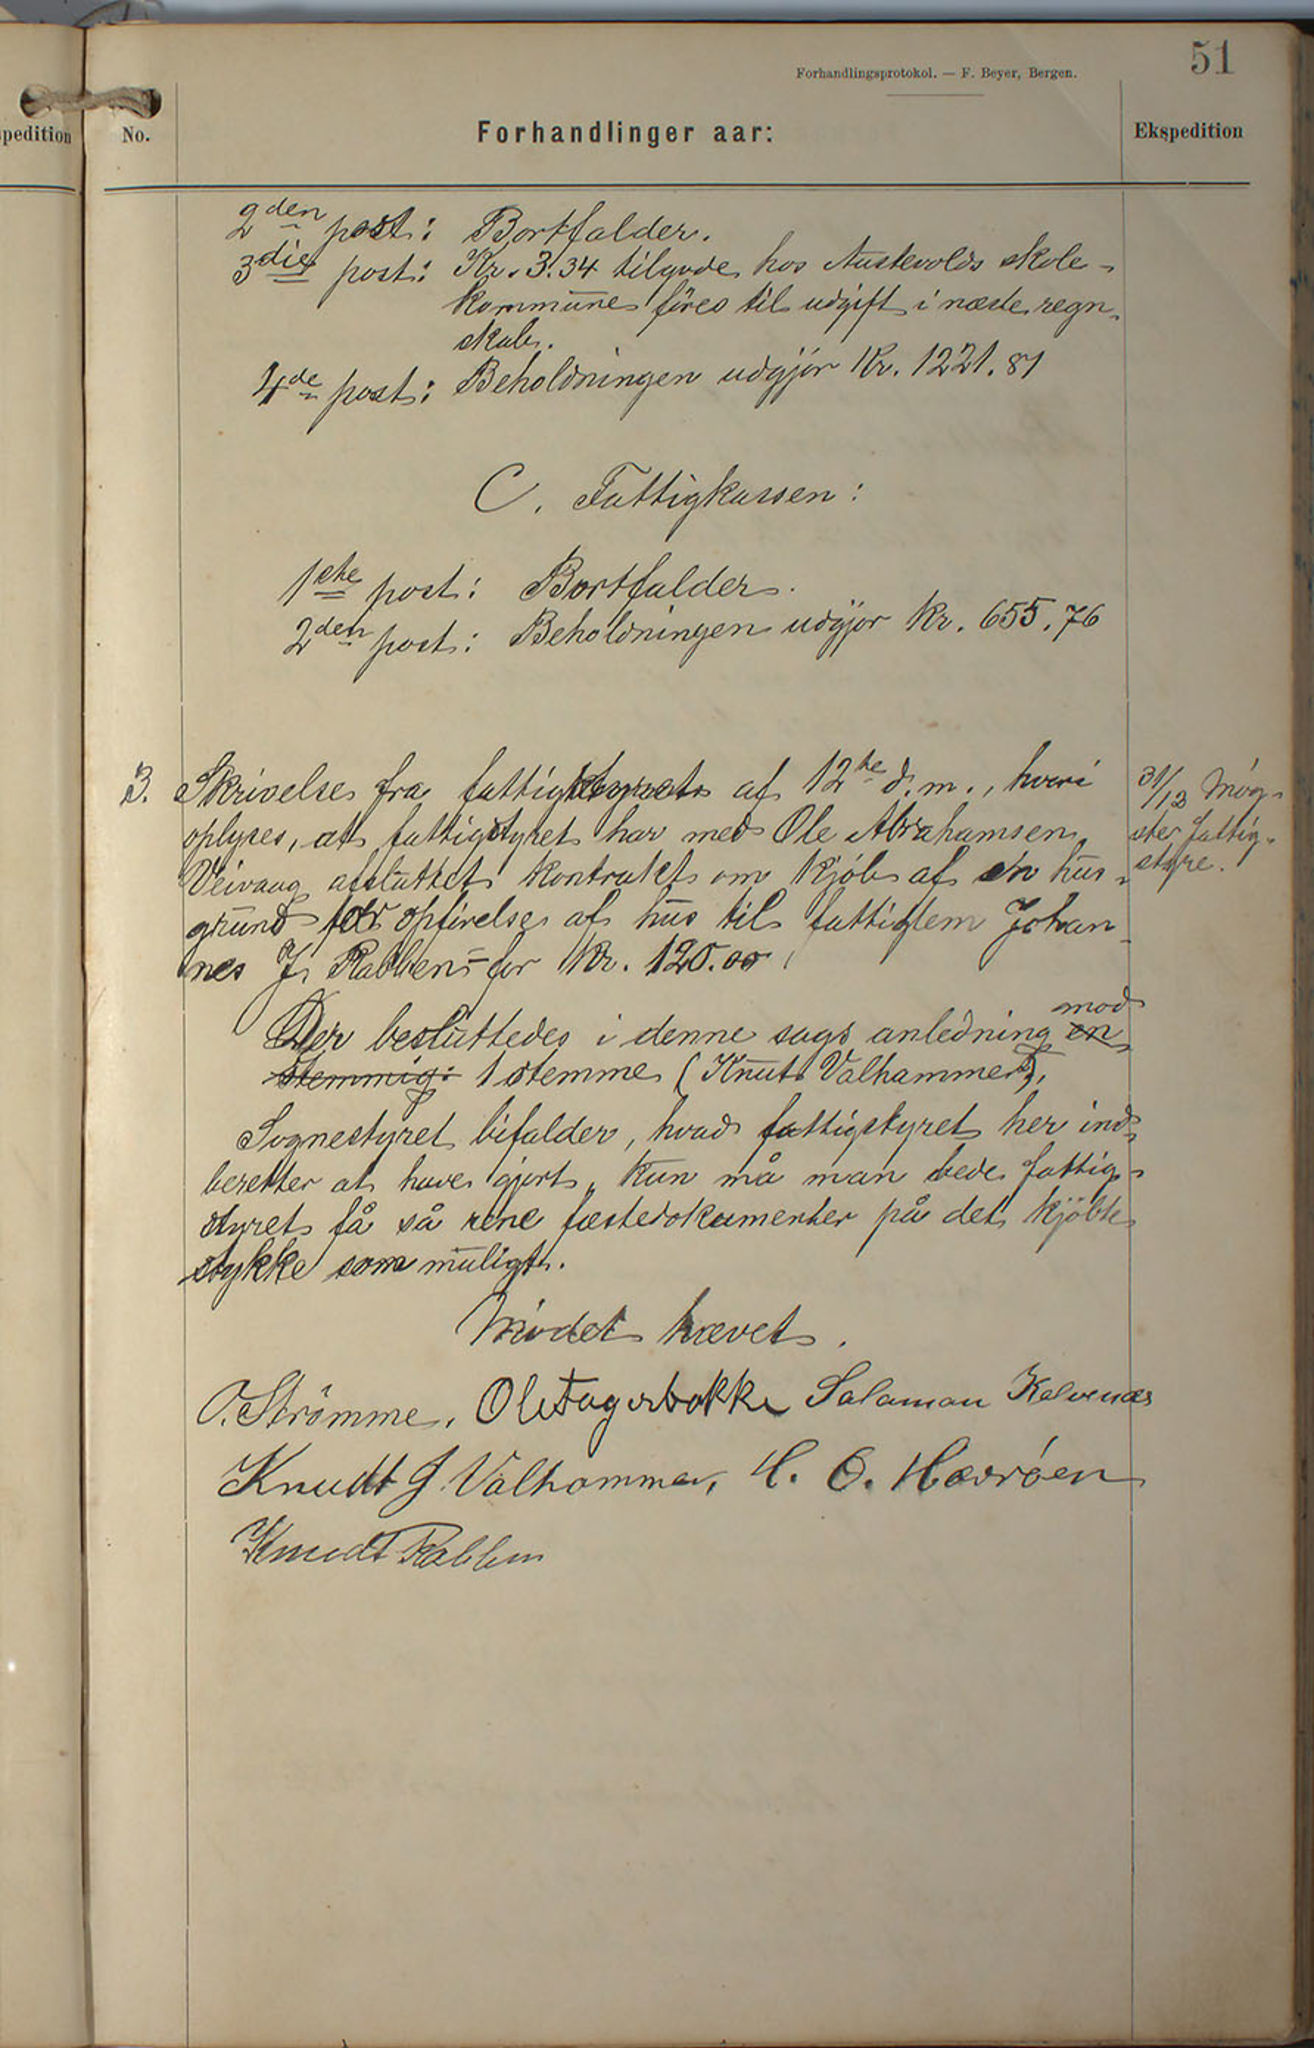 51
Forhandlingsprotokol. — F. Beyer, Bergen.
pedition
No.
Forhandlinger aar:
Ekspedition
2den post: Bortfalder.
3die post: Kr. 3.34 tilgode hos Austevolds skole-
kommune föres til udgift i næste regn-
skab.
4de post: Beholdningen udgjör Kr. 1221.81
C. Fattigkassen:
1ste post: Bortfalder.
2den post: Beholdningen udgjör Kr. 655.76
3. Skrivelse fra fattigstyret af 12te d.m., hvori
oplyses, at fattigstyret har med Ole Abrahamsen
Veivaag afsluttet kontrakt om kjöb af en hus-
grund for opförelse af hus til fattiglem Johan-
nes J. Rabben for Kr. 120.00.
31/12 Mög-
ster fattig-
styre.
Der besluttedes i denne sags anledning en mod
stemmig: 1 stemme (Knut Valhammer).
Sognestyret bifalder, hvad fattigstyret her ind-
beretter at have gjort, kun må man bede fattig-
styret få så rene fæstedokumenter på det kjöbte
stykke som muligt.
Mödet hævet.
O. Strömme, Ole Fagerbakke Salamon Kalvenæs
Knudt J. Valhammer, H. O. Havröen
Knudt Rabben